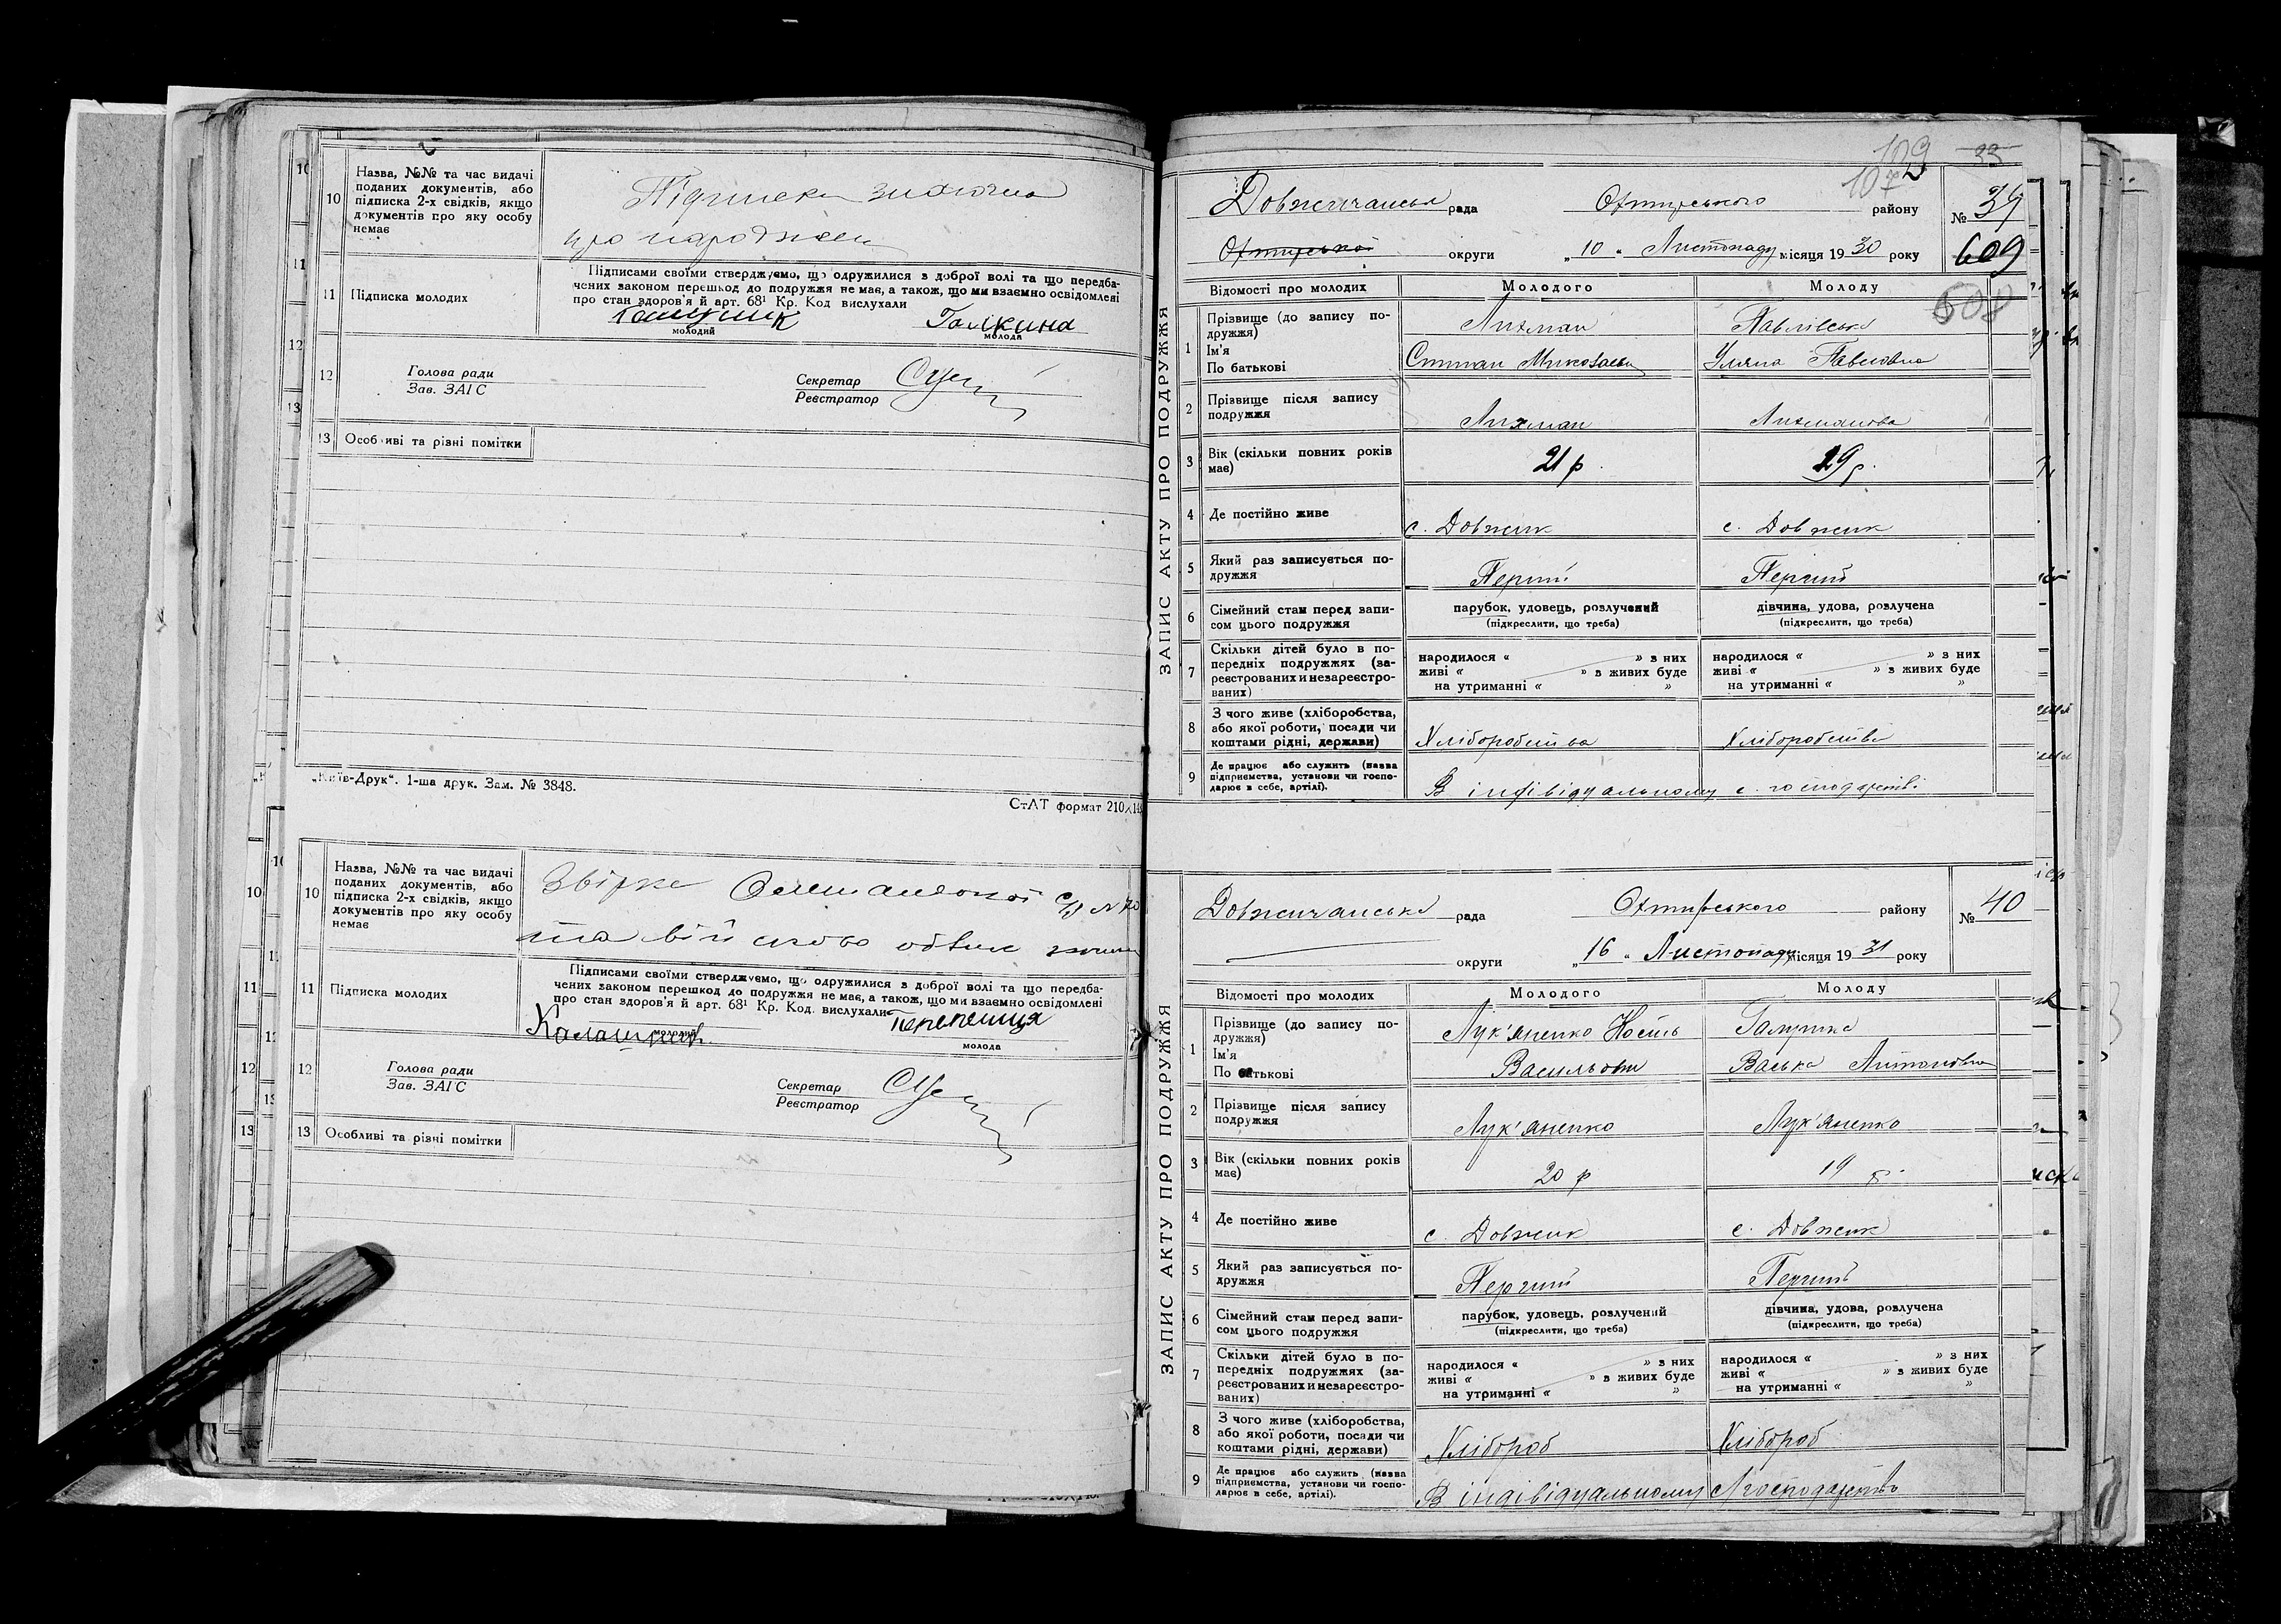 10 Назва, №№ та час видачі
поданих документів, або
підписка 2-х свідків, якщо
документів про яку особу
немає
Підписка
про народжен
11 Підписка молодих
Підписами своїми стверджуємо, що одружилися з доброї волі та що передба-
чених законом перешкод до подружжя не має, а також, що ми взаємно освідомлені
про стан здоров'я й арт. 68¹ Кр. Код вислухали
Галкина
молодий молода
12 Голова ради
Зав. ЗАГС
Секретар
Реєстратор
13 Особливі та різні помітки
„Київ-Друк“. 1-ша друк. Зам. № 3848.
СтАТ формат 210×14
10 Назва, №№ та час видачі
поданих документів, або
підписка 2-х свідків, якщо
документів про яку особу
немає
та військово
11 Підписка молодих
Підписами своїми стверджуємо, що одружилися з доброї волі та що передба-
чених законом перешкод до подружжя не має, а також, що ми взаємно освідомлені
про стан здоров'я й арт. 68¹ Кр. Код. вислухали
Перепелиця
молодий молода
12 Голова ради
Зав. ЗАГС
Секретар
Реєстратор
13 Особливі та різні помітки
109 33
107
ЗАПИС АКТУ ПРО ПОДРУЖЖЯ
Довжичанська рада Охтирського району № 39
Охтирської округи „10“ Листопаду місяця 1930 року 609
608
Відомості про молодих Молодого Молоду
1 Прізвище (до запису по-
дружжя)
Ім'я
По батькові
Лихман Павлівська
Степан Миколаєви Уляна Павловна
2 Прізвище після запису
подружжя
Лихман Лихманова
3 Вік (скільки повних років
має)
21 р. 19 р.
4 Де постійно живе
с. Довжик с. Довжик
5 Який раз записується по-
дружжя
Перший Перший
6 Сімейний стан перед запи-
сом цього подружжя
парубок, удовець, розлучений
(підкреслити, що треба)
дівчина, удова, розлучена
(підкреслити, що треба)
7 Скільки дітей було в по-
передніх подружжях (за-
реєстрованих и незареєстро-
ваних)
народилося “ ” з них
живі “ ” в живих буде
на утриманні “ ”
народилося “ ” з них
живі “ ” в живих буде
на утриманні “ ”
8 З чого живе (хліборобства,
або якої роботи, посади чи
коштами рідні, держави)
Хліборобства Хліборобства
9 Де працює або служить (назва
підприємства, установи чи госпо-
дарює в себе, артілі).
В індівідуальному с. господарстві
ЗАПИС АКТУ ПРО ПОДРУЖЖЯ
Довжичанська рада Охтирського району № 40
округи „16“ Листопаду місяця 1931 року
Відомості про молодих Молодого Молоду
1 Прізвище (до запису по-
дружжя)
Ім'я
По батькові
Лук'яненко
Васильович Васька Антоновна
2 Прізвище після запису
подружжя
Лук'яненко Лук'яненко
3 Вік (скільки повних років
має)
20 р 19 р.
4 Де постійно живе
с. Довжик с. Довжик
5 Який раз записується по-
дружжя
Перший Перший
6 Сімейний стан перед запи-
сом цього подружжя
парубок, удовець, розлучений
(підкреслити, що треба)
дівчина, удова, розлучена
(підкреслити, що треба)
7 Скільки дітей було в по-
передніх подружжях (за-
реєстрованих и незареєстро-
ваних)
народилося “ ” з них
живі “ ” в живих буде
на утриманні “ ”
народилося “ ” з них
живі “ ” в живих буде
на утриманні “ ”
8 З чого живе (хліборобства,
або якої роботи, посади чи
коштами рідні, держави)
Хлібороб Хлібороб
9 Де працює або служить (назва
підприємства, установи чи госпо-
дарює в себе, артілі).
В індівідуальному господарстві